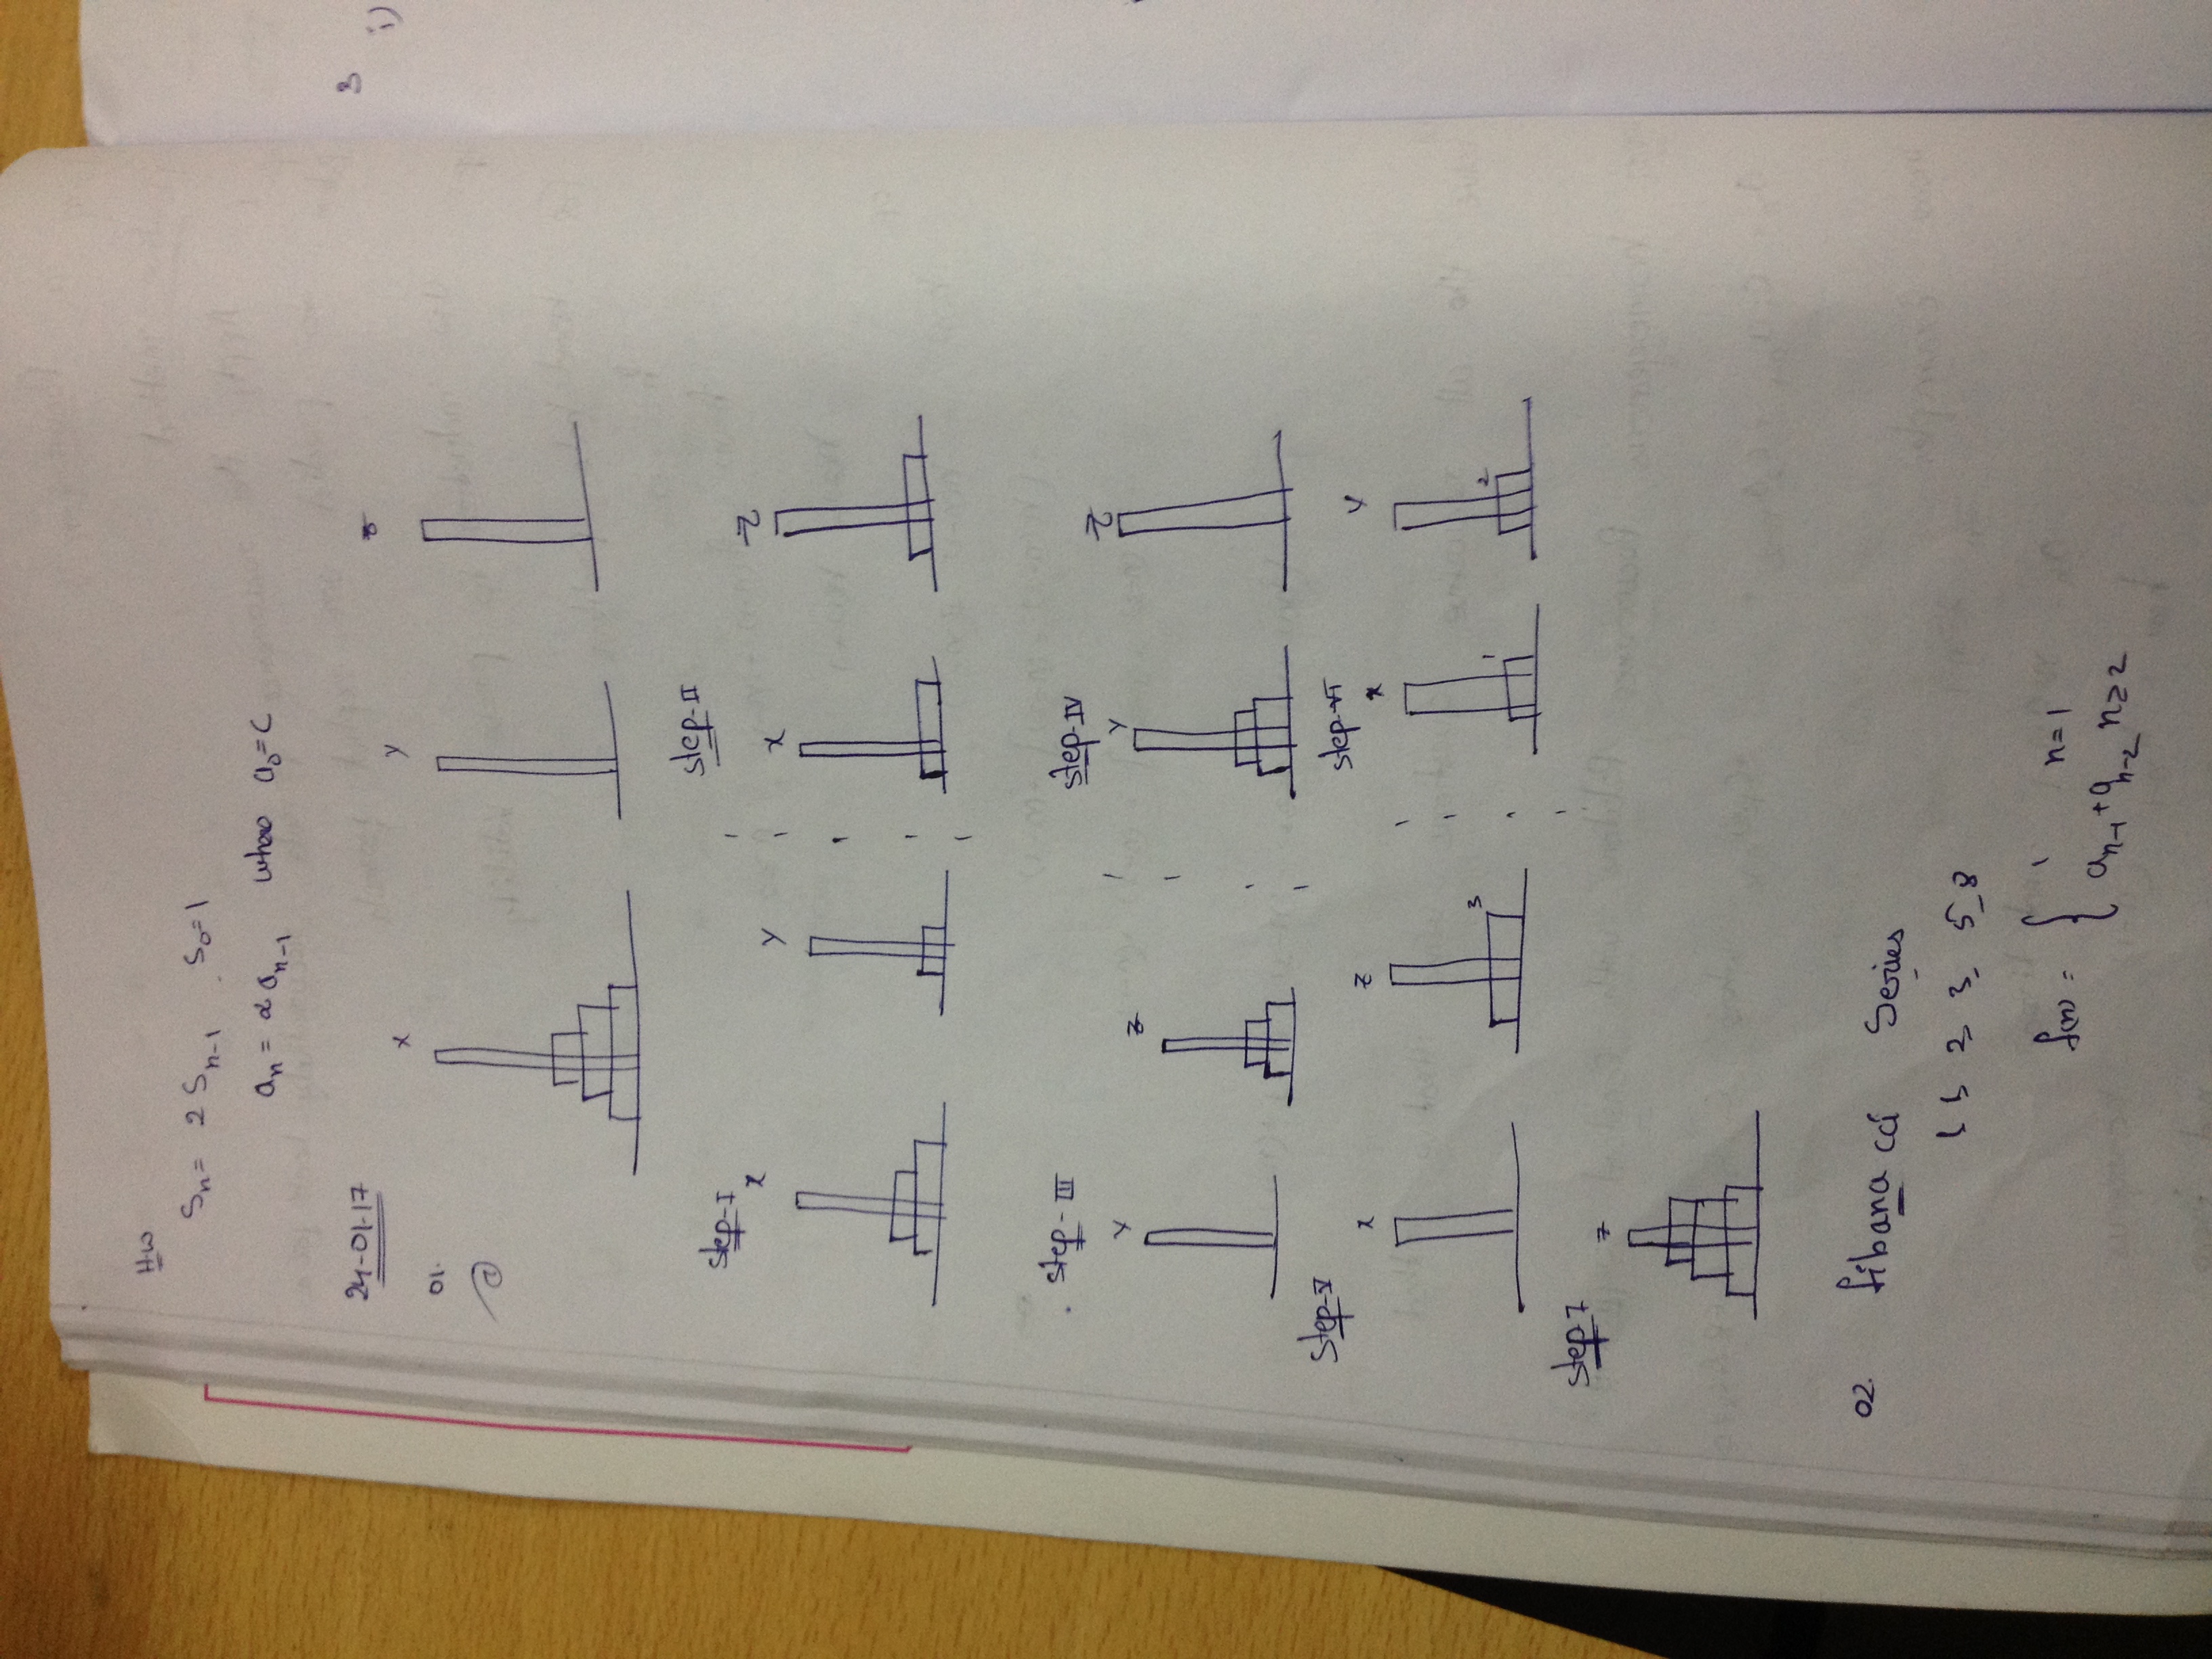 H.W
Sn = 2 Sn-1 . S0=1
an = α an-1 where a0=C
24-01-17
01.
x y
Step-I Step-II
x y x Z
Step-III Step-IV
y z y Z
Step-V Step-VI
x z x y
3 1 2
Step-7
z
02. fibana cci Series
1 1, 2, 3, 5, 8
f(n) = { 1 n=1
an-1 + an-2 n≥2
3 i)